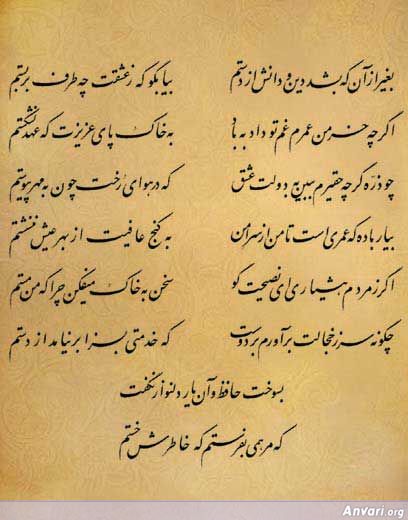 بغیر از آن که بشد دین و دانش از دستم بیا بگو که ز عشقت چه طرف بربستم
اگرچه خرمن عمرم غم تو داد به باد به خاک پای عزیزت که عهد نشکستم
چو ذره گرچه حقیرم ببین به دولت عشق که در هوای رخت چون به مهر پیوستم
بیار باده که عمری است تا من از سر امن به کنج عافیت از بهر عیش ننشستم
اگر ز مردم هشیاری ای نصیحت گو سخن به خاک میفکن چرا که من مستم
چگونه سر ز خجالت برآورم بر دوست که خدمتی بسزا برنیامد از دستم
بسوخت حافظ و آن یار دلنواز نگفت
که مرهمی بفرستم که خاطرش خستم
Anvari.org